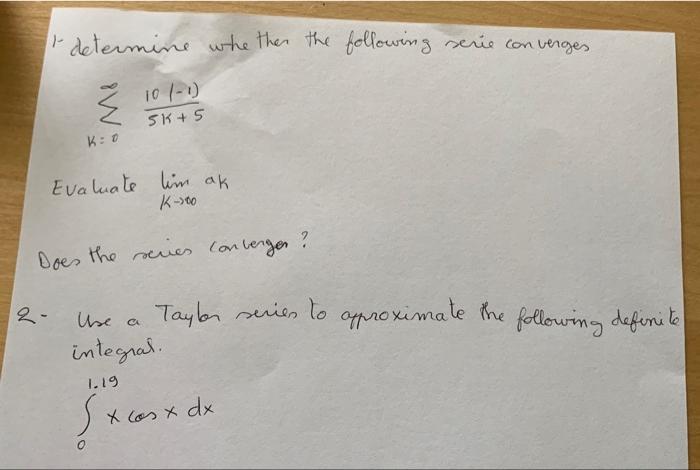 1- determine whether the following serie converges
∞
Σ 10(-1) / 5K+5
K=0
Evaluate lim aK
K→∞
Does the series converges?
2- Use a Taylor series to approximate the following definite
integral.
1.19
∫ x cos x dx
0